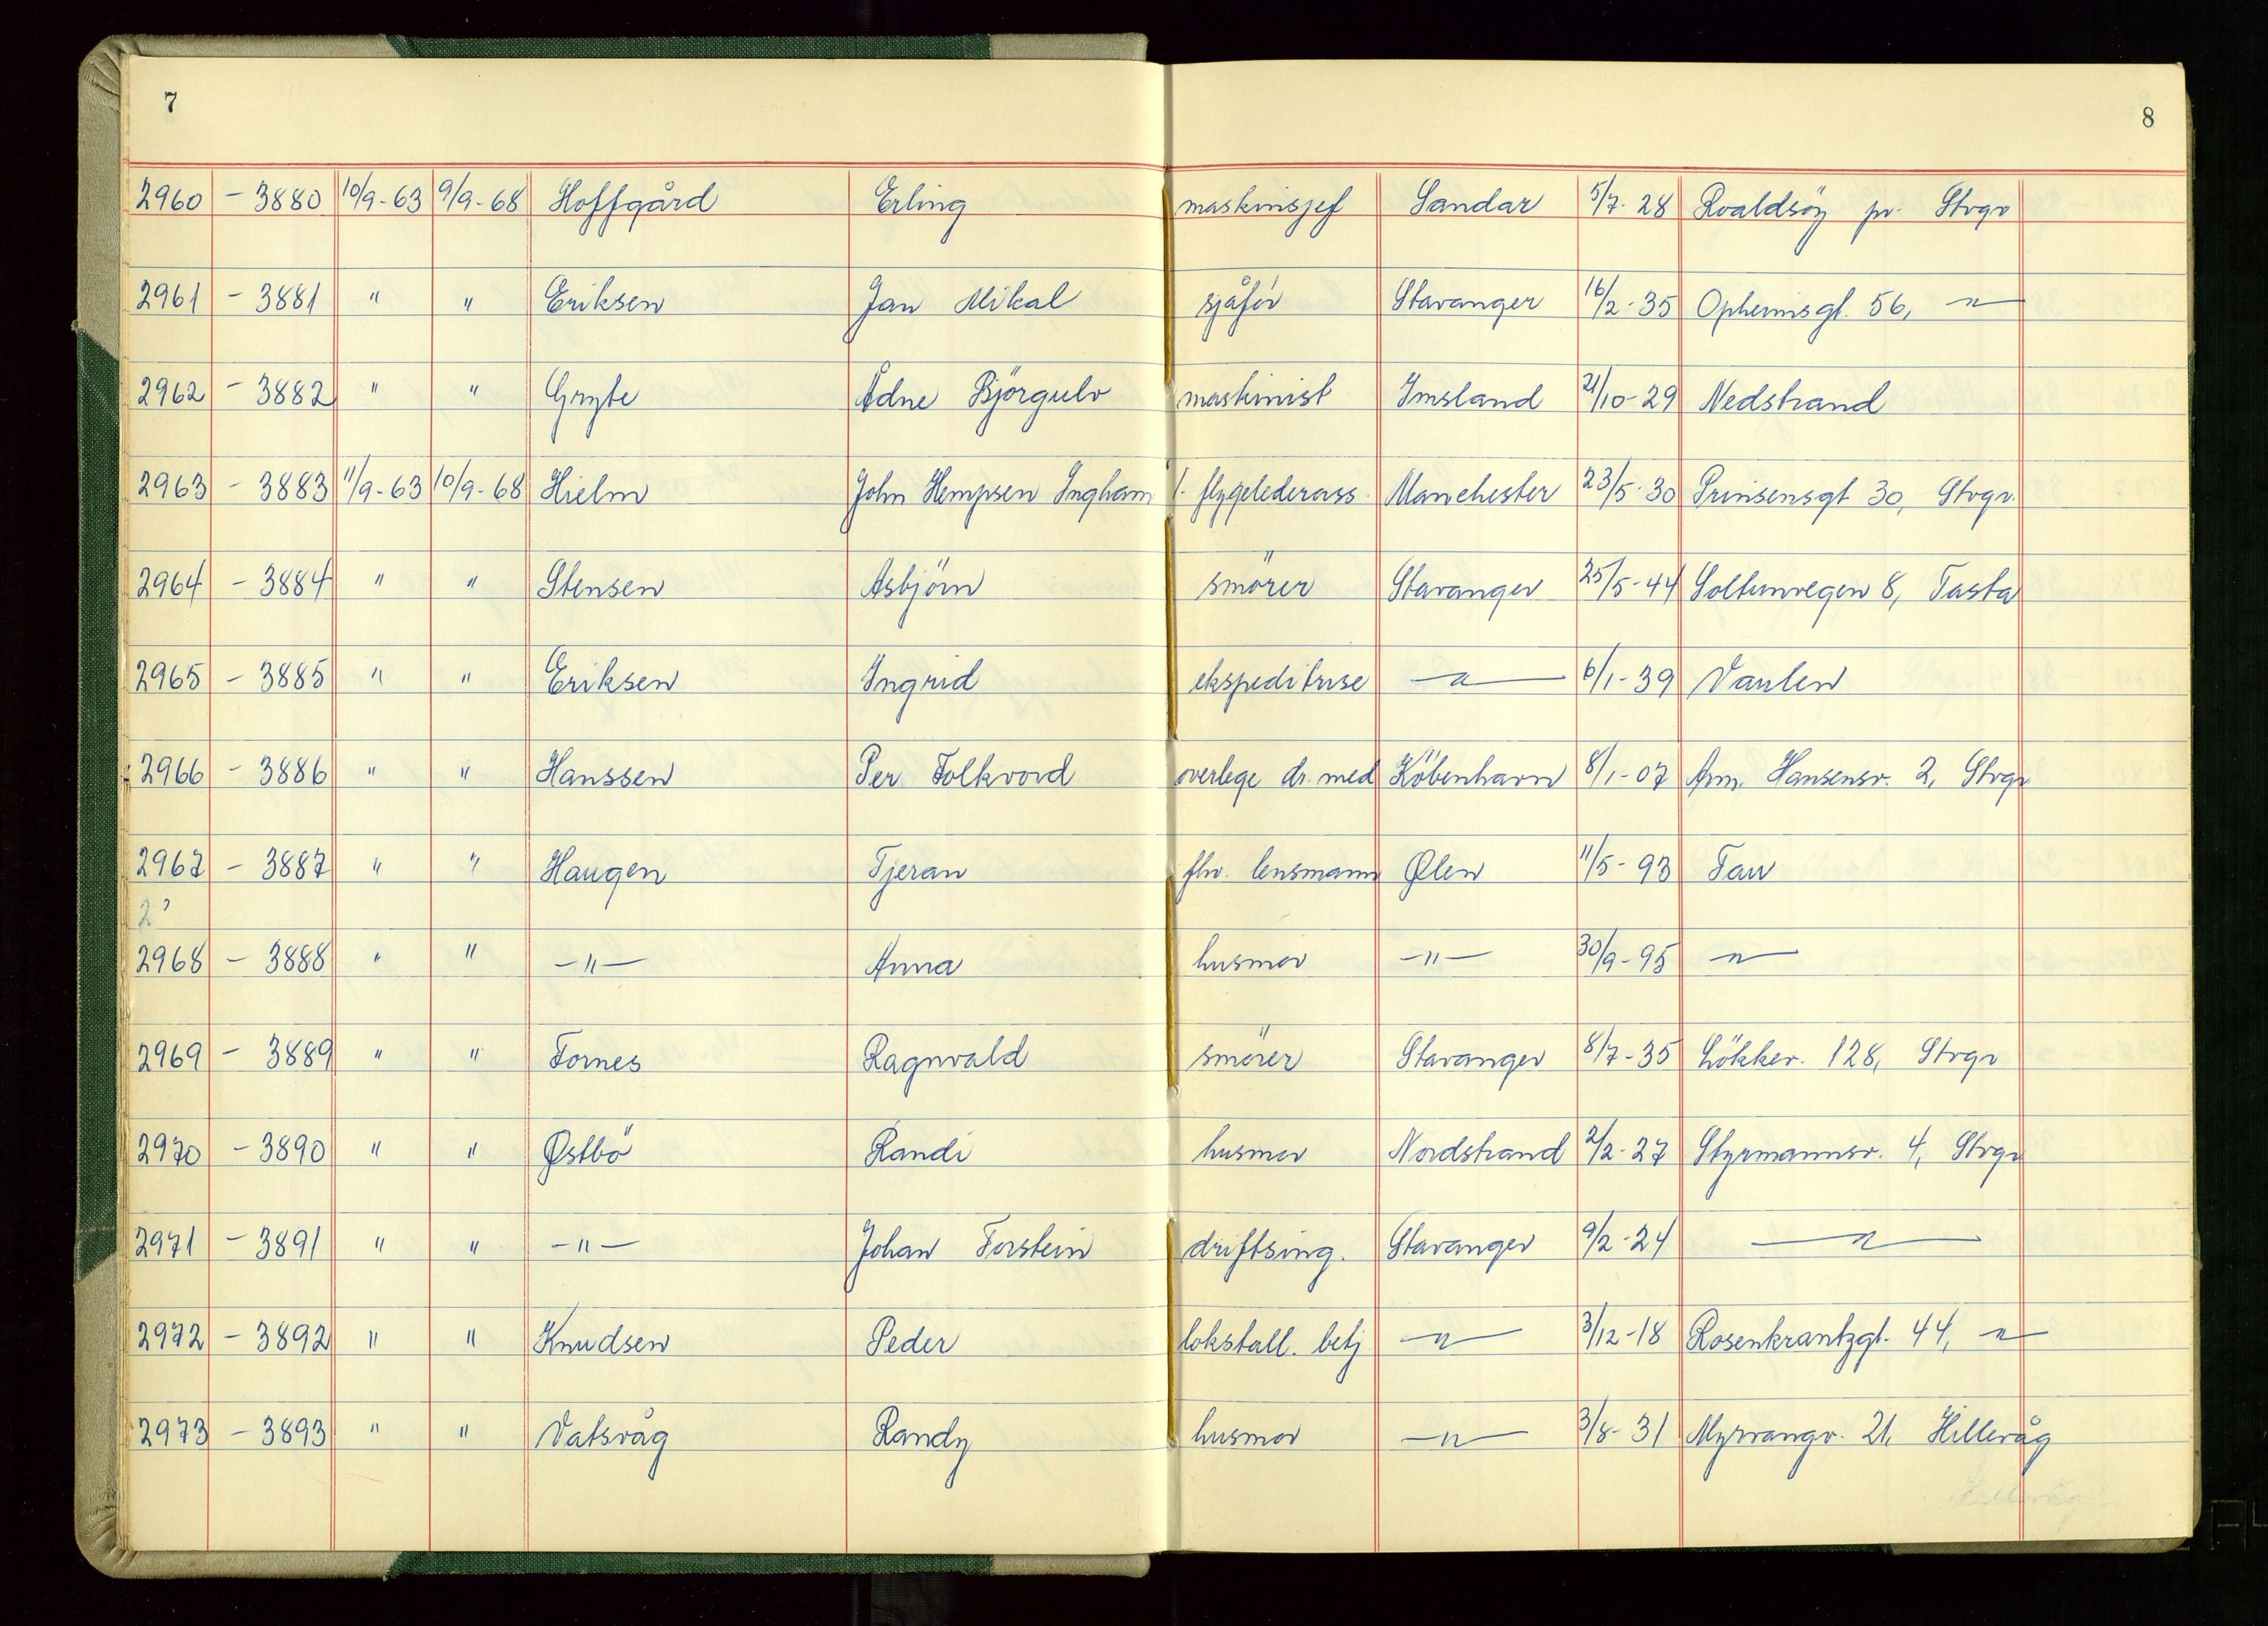 7
8
2960 - 3880 10/9-63 9/9-68 Hoffgård Erling maskinsjef Sandar 5/7-28 Roaldsöy pr. Stvgr
2961 - 3881 " " Eriksen Jan Mikal sjåför Stavanger 16/2-35 Opheimsgt. 56, -"-
2962 - 3882 " " Gryte Ådne Björgulv maskinist Imsland 21/10-29 Nedstrand
2963 - 3883 11/9-63 10/9-68 Hielm John Hempsen Ingham f. flygelederass. Manchester 23/5-30 Prinsensgt 30, Stvgr.
2964 - 3884 " " Stensen Asbjörn smörer Stavanger 25/5-44 Soltunvegen 8, Tasta
2965 - 3885 " " Eriksen Ingrid ekspeditrise -"- 6/1-39 Vaulen
2966 - 3886 " " Hanssen Per Folkvord overlege dr. med Köbenhavn 8/1-07 Arm. Hansensv. 2, Stvgr
2967 - 3887 " " Haugen Tjeran fhv. lensmann Ølen 11/5-93 Tau
2968 - 3888 " " -"- Anna husmor -"- 30/9-95 -"-
2969 - 3889 " " Fornes Ragnvald smörer Stavanger 8/7-35 Lökkev. 128, Stvgr
2970 - 3890 " " Østbö Randi husmor Nordstrand 2/2-27 Styrmannsv. 4, Stvgr
2971 - 3891 " " -"- Johan Torstein driftsing. Stavanger 9/2-24 -"-
2972 - 3892 " " Knudsen Peder lokstall. betj -"- 3/12-18 Rosenkrantzgt. 44, -"-
2973 - 3893 " " Vatsvåg Randy husmor -"- 3/8-31 Myrvangv. 21, Hillevåg